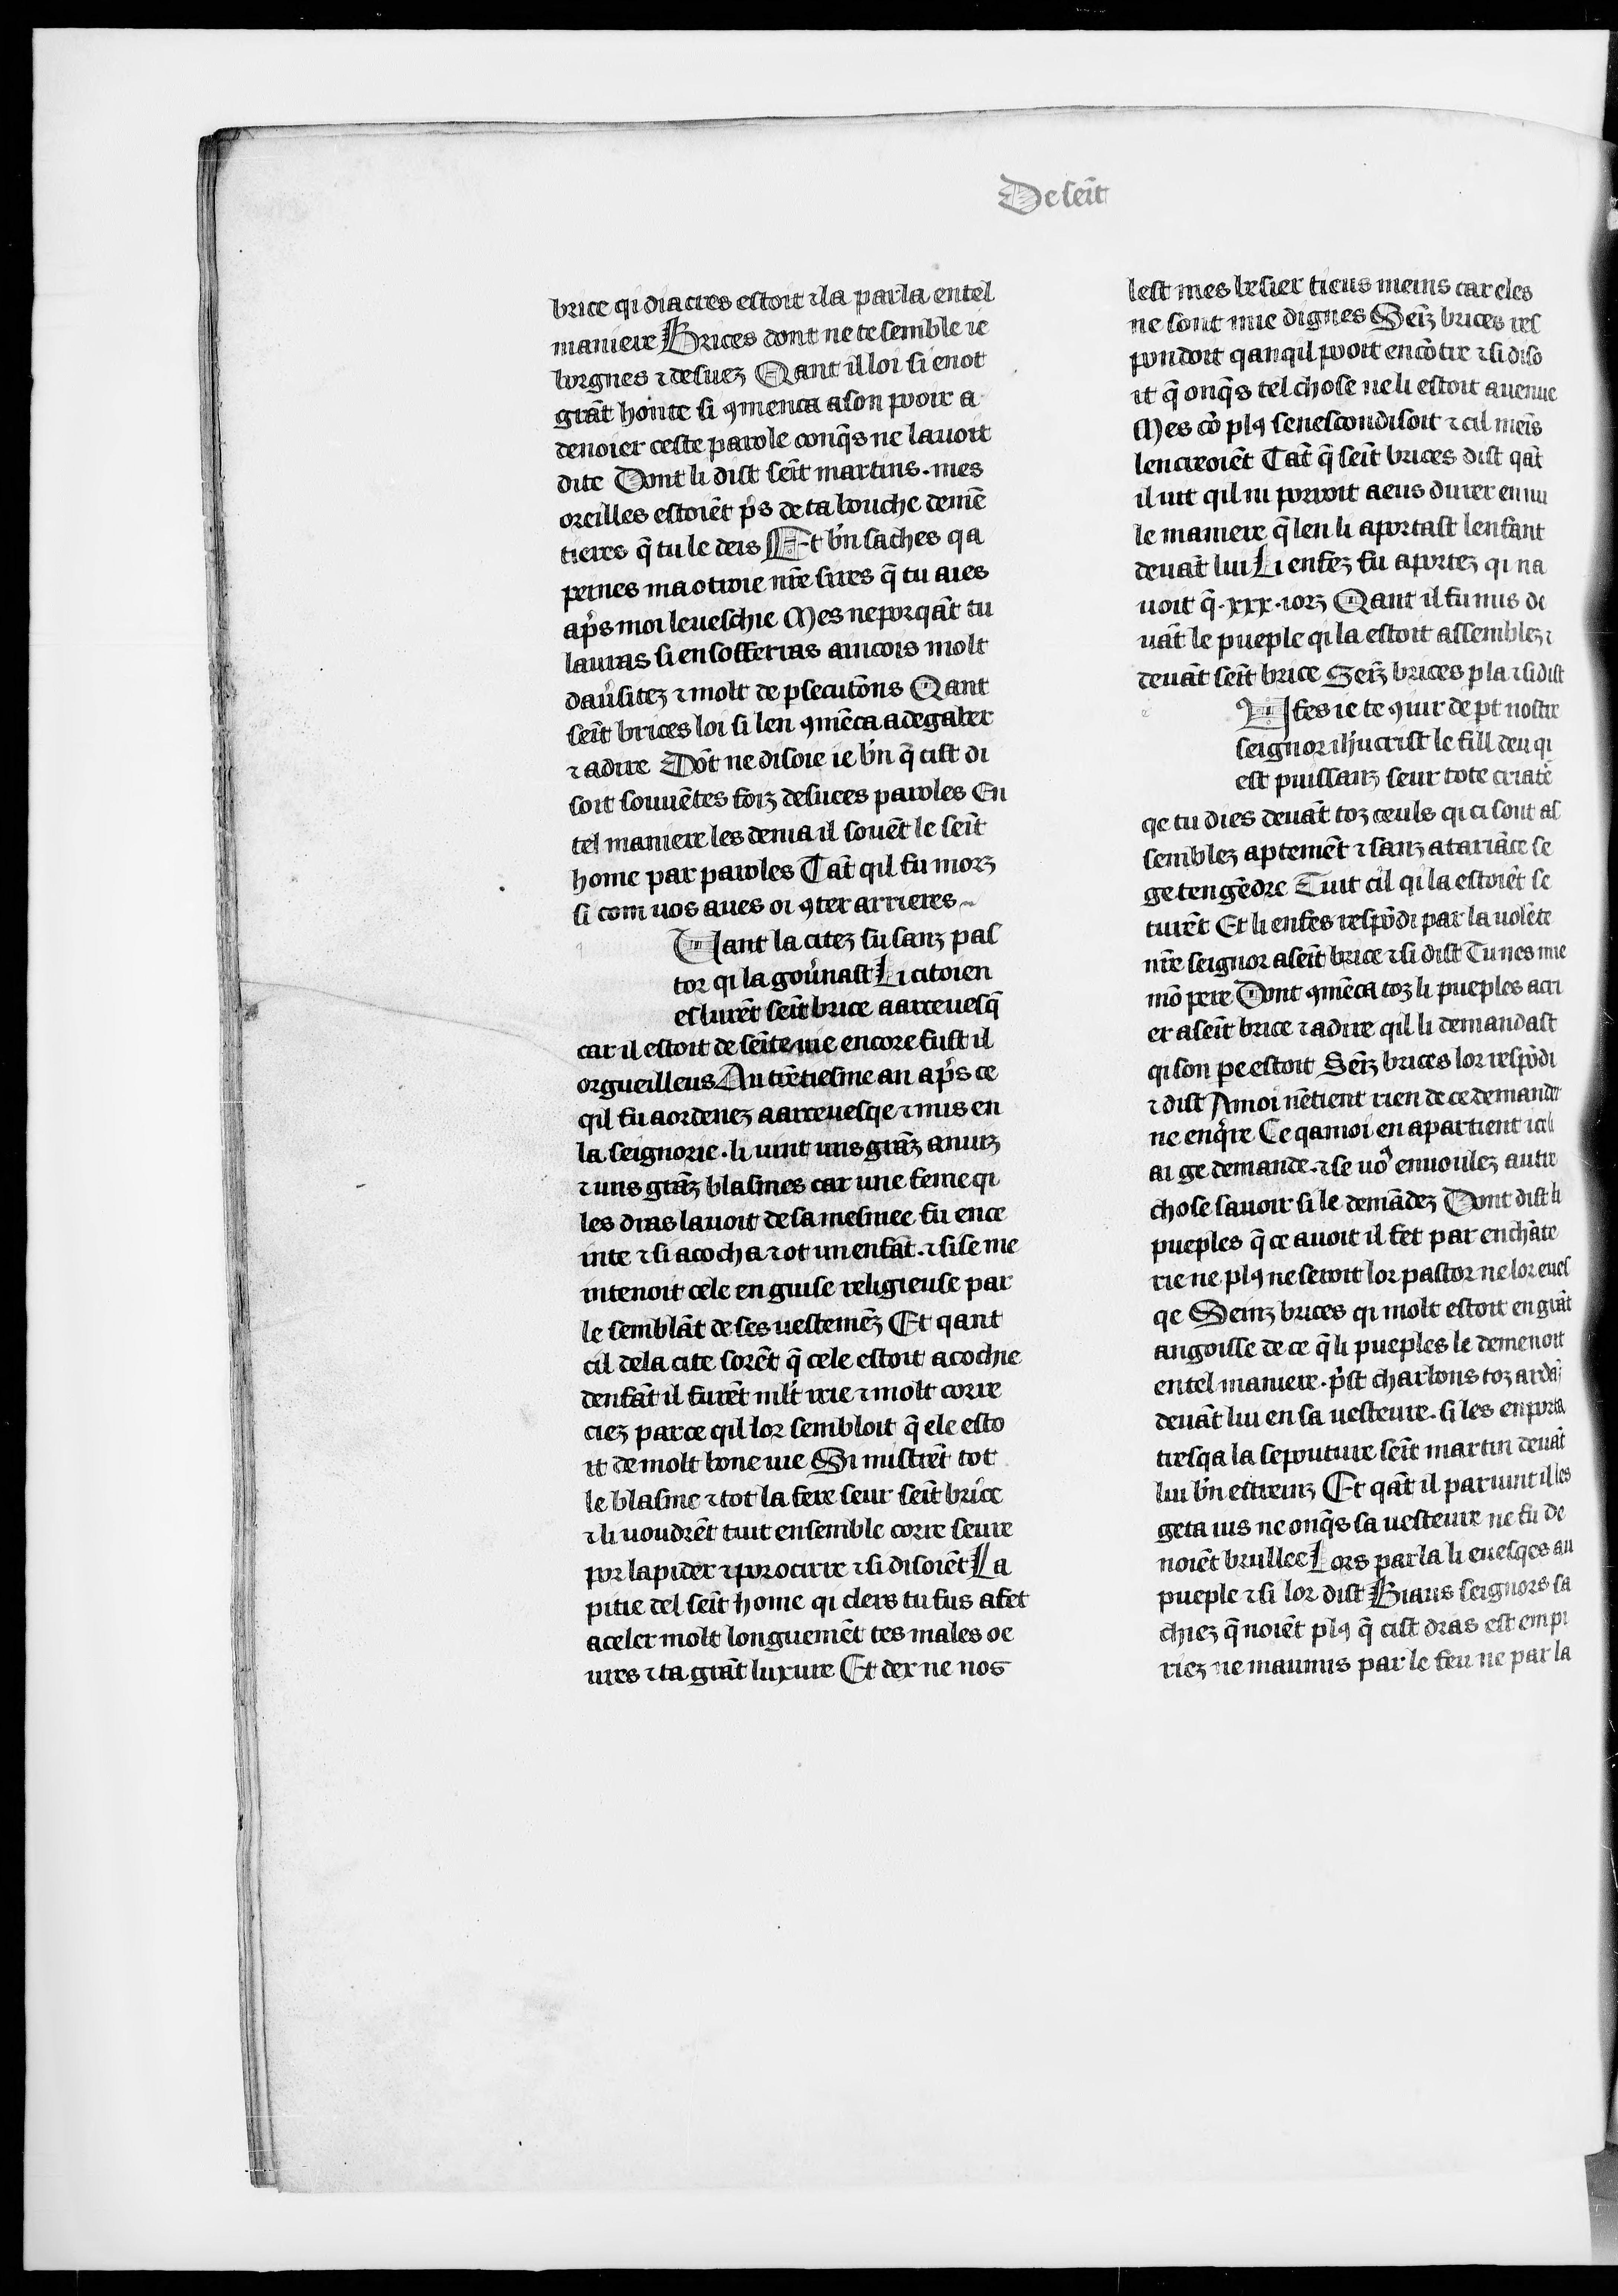 De seīt
brice qi diacres estoit ⁊ la parla en tel
maniere Brices dont ne te semble ie
borgnes ⁊ desuez Qant il loi si en ot
grāt honte si ꝯmenca a son pooir a
denoier ceste parole conq̄s ne lauoit
dite Dont li dist seīt martins . mes
oreilles estoiēt ps de ta bouche demē
tieres q̄ tu le deis Et bn̄ saches qa
peines ma otroie nr̄e sires q̄ tu aies
aps moi leueschie Mes neporqāt tu
lauras si en sofferras aincois molt
dau̾sitez ⁊ molt de ꝑsecutōns Qant
seīt brices loi si len ꝯmēca a degaber
⁊ a dire Dōt ne disoie ie bn̄ q̄ cist di
soit souuētes foiz desuees paroles En
tel maniere les denia il souēt le seīt
home par paroles Tāt qil fu morz
si com uos aues oi ꝯter arrieres
Qant la citez fu sanz pas
tor qi la gou̾nast Li citoien
eslurēt seīt brice a arceuesq̄
car il estoit de seīte uie encore fust il
orgueilleus Au trētiesme an aps ce
qil fu aordenez a arceuesqe ⁊ mis en
la seignorie . li uint uns grāz anuiz
⁊ uns grāz blasmes car une feme qi
les dras lauoit de sa mesniee fu ence
inte ⁊ si acocha ⁊ ot un enfāt . ⁊ si se me
intenoit cele en guise religieuse par
le semblāt de ses uestemēz Et qant
cil de la cite sorēt q̄ cele estoit acochie
denfāt il furēt ml̄t irie ⁊ molt corre
ciez par ce qil lor sembloit q̄ ele esto
it de molt bone uie Si mistrēt tot
le blasme ⁊ tot la fere seur seīt brice
⁊ li uoudrēt tuit ensemble corre seure
por lapider ⁊ por ocirre ⁊ si disoiēt La
pitie del seīt home qi clers tu fus a fet
a celer molt longuemēt tes males oe
ures ⁊ ta grāt luxure Et dex ne nos
lest mes besier tieus meins car eles
ne sont mie dignes Seīz brices res
pondoit qanqil pooit encōtre ⁊ si diso
it q̄ onq̄s tel chose ne li estoit auenue
Mes cō plꝯ senescondisoit ⁊ cil meīs
len creoiēt Tāt q̄ seīt brices dist qāt
il uit qil ni porroit a eus durer en nu
le maniere q̄ len li aportast lenfant
deuāt lui Li enfez fu aportez qi na
uoit q̄ . xxx . iorz Qant il fu mis de
uāt le pueple qi la estoit assemblez ⁊
deuāt seīt brice Seīz brices ꝑla ⁊ si dist
Nfes ie te ꝯiur de pt nostre
seignor ihucrist le fill deu qi
est puissanz seur tote criatē
qe tu dies deuāt toz ceuls qi ci sont as
semblez aptemēt ⁊ sanz atariāce se
ge tengēdre Tuit cil qi la estoiēt se
turēt Et li enfes respōdi par la uolēte
nr̄e seignor a seīt brice ⁊ si dist Tu nes mie
mō pere Dont ꝯmēca toz li pueples a cri
er a seīt brice ⁊ a dire qil li demandast
qi son ꝑe estoit Seīz brices lor respōdi
⁊ dist A moi nētient rien de ce demander
ne enqͥre Ce qa moi en apartient icel
ai ge demande . ⁊ se uos en uoulez autre
chose sauoir si le demādez Dont dist li
pueples q̄ ce auoit il fet par enchāte
rie ne plꝯ ne seroit lor pastor ne lor eues
qe Seinz brices qi molt estoit en grāt
angoisse de ce q̄ li pueples le demenoit
en tel maniere . pͥst charbons toz ardāz
deuāt lui en sa uesteure . si les en porta
tresqa la sepouture seīt martin deuāt
lui bn̄ estreinz Et qāt il par uint il les
geta ius ne onq̄s sa uesteure ne fu de
noiēt brullee Lors parla li euesqes au
pueple ⁊ si lor dist Biaus seignors sa
chiez q̄ noiēt plꝯ q̄ cist dras est empi
riez ne maumis par le feu ne par la